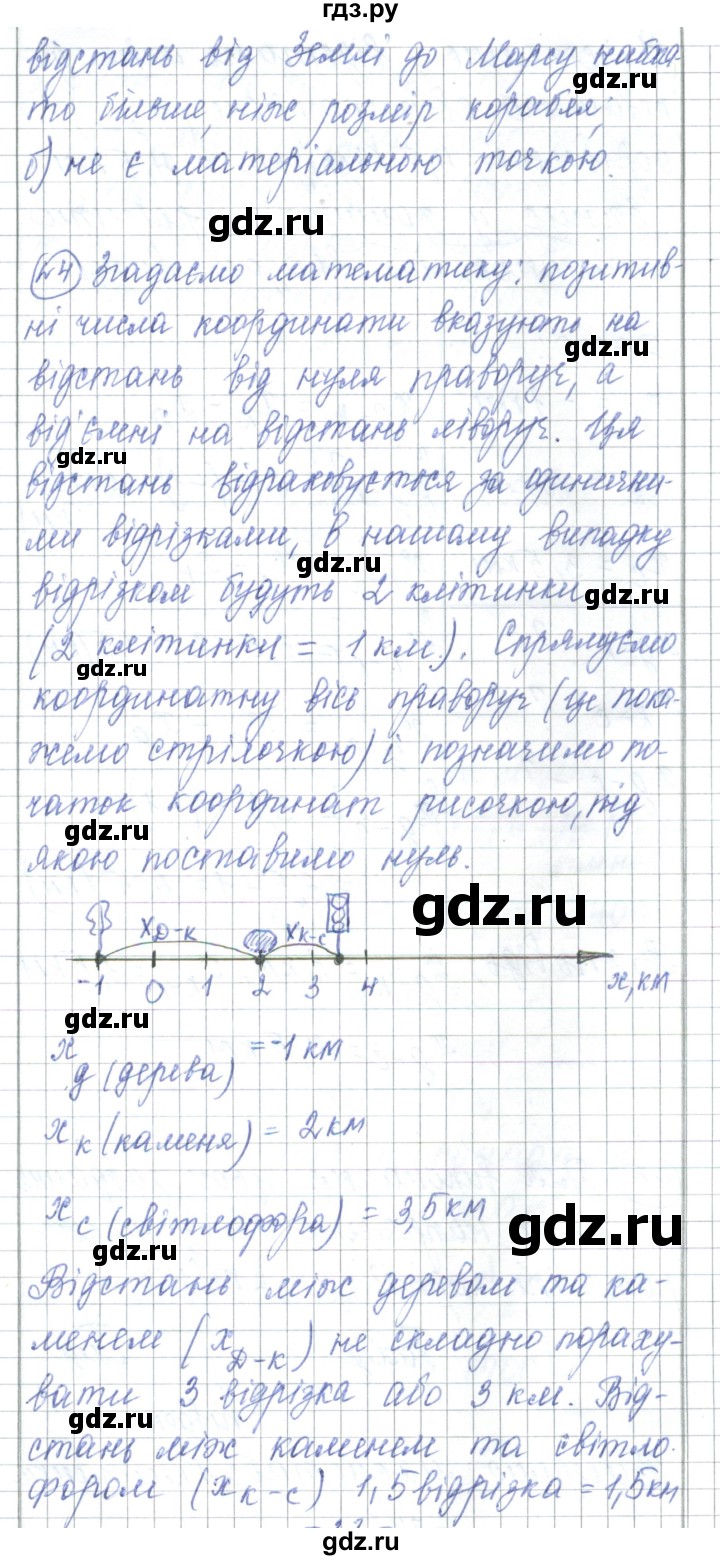 гдз.ру
відстань від Землі до Марсу набага-
gdz.ru
то більше, ніж розмір корабля;
б) не є матеріальною точкою.
gdz.ru
24 Згадаємо математику: позитив-
ні числа координати вказують на
gdz.ru
відстань від нуля праворуч, а
від'ємні на відстань ліворуч. Ця
gdz.ru
відстань відраховується за одинични-
ми відрізками, в нашому випадку
gdz.ru
відрізком будуть 2 клітинки
gdz.ru
(2 клітинки = 1 км). Спрямуємо
gdz.ru
координатну вісь праворуч (це пока-
жемо стрілочкою) і позначимо по-
чаток координат рисочкою, під
gdz.ru
якою поставимо нуль.
gdz.ru
xД-к xк-с
-1 0 1 2 3 4 x, км
xд (дерева) = -1 км
xк (каменя) = 2 км
xс (світлофора) = 3,5 км
gdz.ru
gdz.ru
Відстань між деревом та ка-
менем (xД-к) не складно пораху-
вати 3 відрізка або 3 км. Від-
gdz.ru
стань між каменем та світло-
фором (xк-с) 1,5 відрізка = 1,5 км
gdz.ru